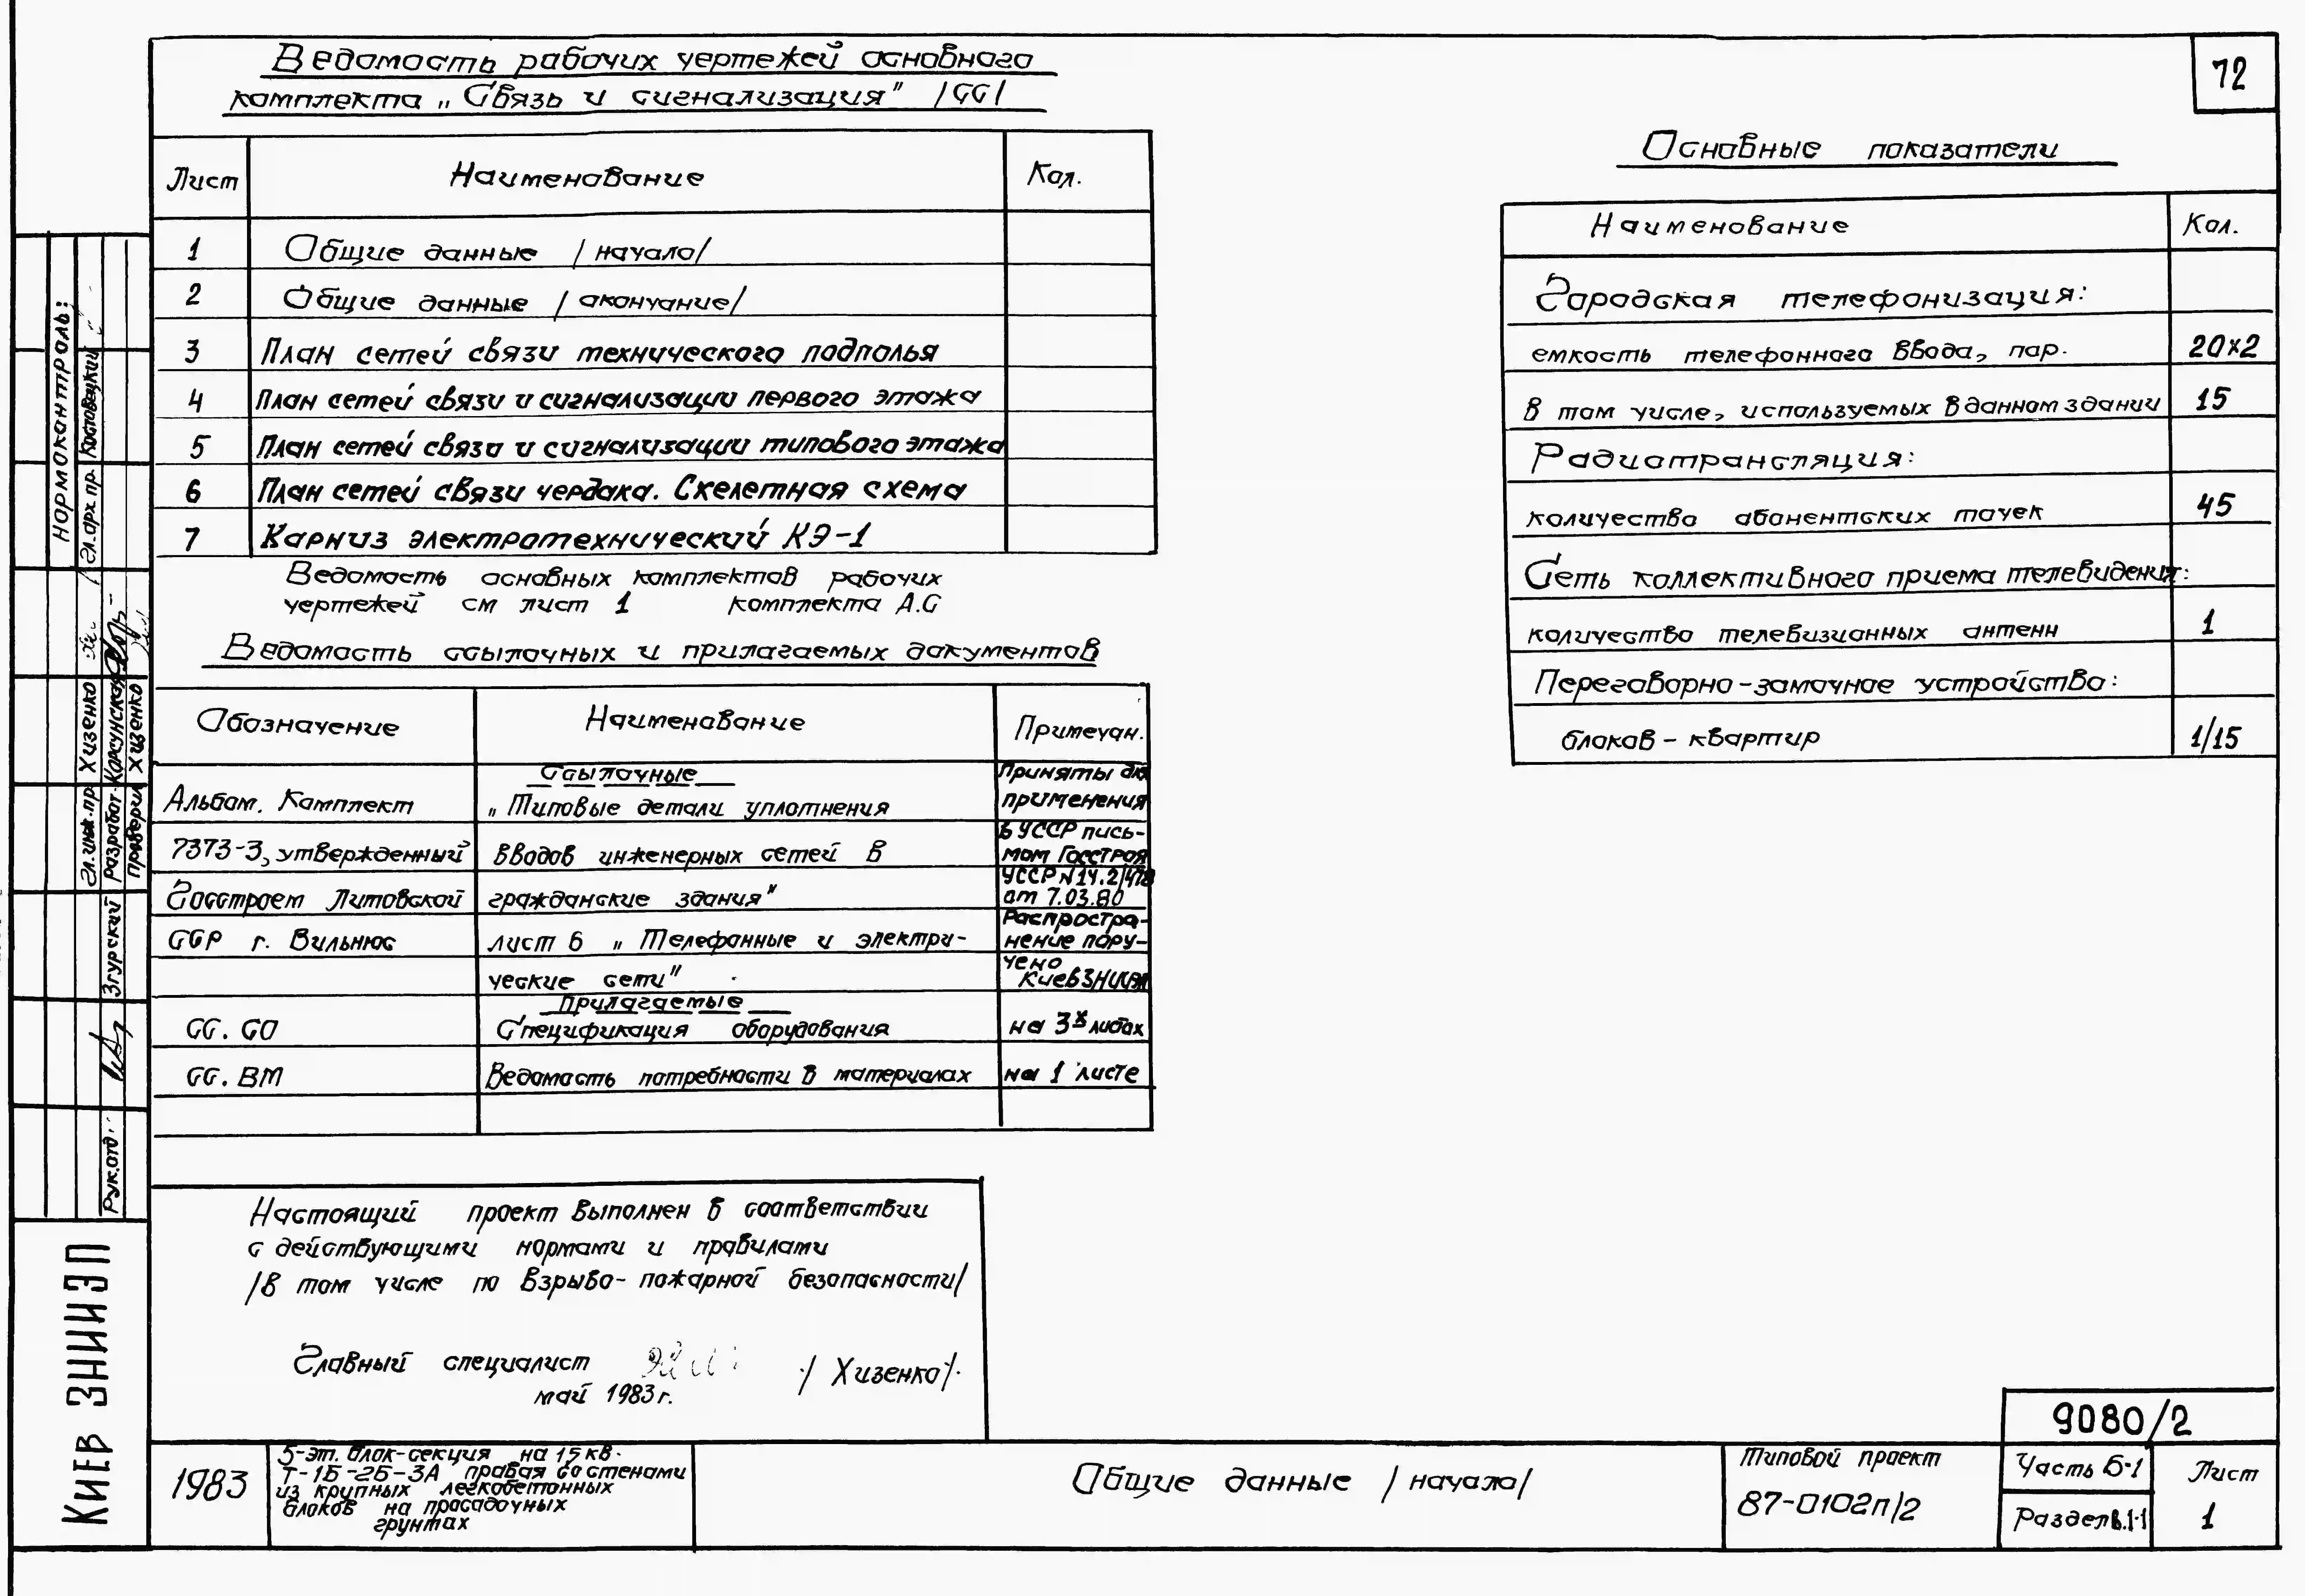 72
Ведомость рабочих чертежей основного
комплекта „Связь и сигнализация" /СС/
Лист Наименование Кол.
1 Общие данные /начало/
2 Общие данные /окончание/
3 План сетей связи технического подполья
4 План сетей связи и сигнализации первого этажа
5 План сетей связи и сигнализации типового этажа
6 План сетей связи чердака. Скелетная схема
7 Карниз электротехнический КЭ-1
Ведомость основных комплектов рабочих
чертежей см лист 1 комплекта А.С
Ведомость ссылочных и прилагаемых документов
Обозначение Наименование Примечан.
Ссылочные
Альбом. Комплект „Типовые детали уплотнения
7373-3, утвержденный вводов инженерных сетей в
Госстроем Литовской гражданские здания"
ССР г. Вильнюс лист 6 „Телефонные и электри-
ческие сети"
Приняты для
применения
в УССР пись-
мом Госстроя
УССР №14.2/478
от 7.03.80
Распростра-
нение пору-
чено
КиевЗНИИЭП
Прилагаемые
СС. СО Спецификация оборудования на 3х листах
СС. ВМ Ведомость потребности в материалах на 1 листе
Основные показатели
Наименование Кол.
Городская телефонизация:
емкость телефонного ввода, пар. 20х2
В том числе, используемых в данном здании 15
Радиотрансляция:
количество абонентских точек 45
Сеть коллективного приема телевидения:
количество телевизионных антенн 1
Переговорно-замочное устройство:
блоков - квартир 1/15
Настоящий проект выполнен в соответствии
с действующими нормами и правилами
/в том числе по взрыво-пожарной безопасности/
Главный специалист /Хизенко/.
май 1983 г.
Нормоконтроль:
Гл. арх. пр. Костовецкий
Гл. инж. пр. Хизенко
Разработ. Корсунская
Проверил Хизенко
Рук. отд. Згурский
Киев ЗНИИЭП
1983
5-эт. блок-секция на 15 кв.
Т-1Б-2Б-3А правая со стенами
из крупных легкобетонных
блоков на просадочных
грунтах
Общие данные /начало/
Типовой проект
87-0102п/2
9080/2
Часть Б-1
Раздел 1-1
Лист
1